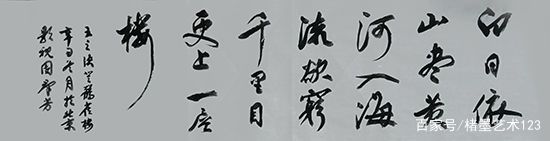 白日依
山尽黄
河入海
流欲窮
千里目
更上一层
楼
王之涣登鹳雀楼
月於北京
影视园
百家号/楮墨艺术123